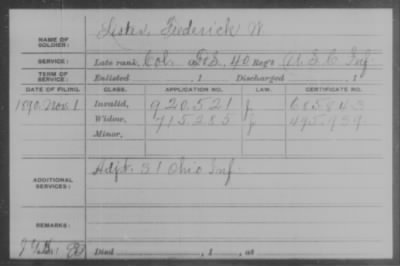 NAME OF SOLDIER: Lister, Frederick W.
SERVICE: Late rank, Col. F&S, 40 Reg't U.S.C. Inf
TERM OF SERVICE: Enlisted , 1 Discharged , 1
DATE OF FILING. CLASS. APPLICATION NO. LAW. CERTIFICATE NO.
1890. Nov. 1 Invalid, 920.521 J 685843
Widow, 715285 J 495959
Minor,
ADDITIONAL SERVICES: Adjt. 31 Ohio Inf.
REMARKS:
Died , 1 , at